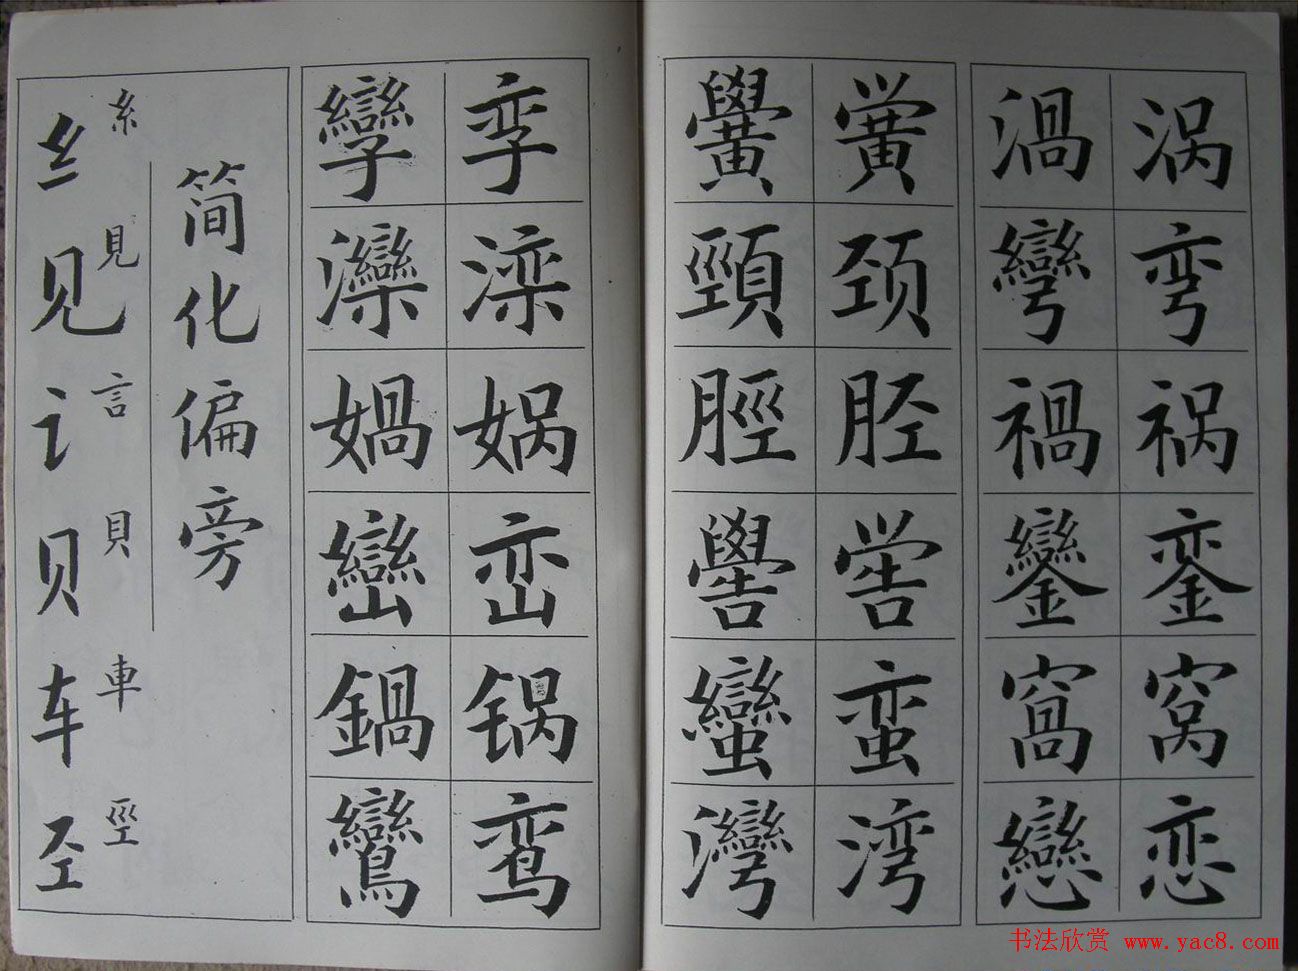 涡弯祸銮窝恋
渦彎禍鑾窩戀
黉颈胫喾蛮湾
黌頸脛嚳蠻灣
孪滦娲峦锅鸾
孿灤媧巒鍋鸞
简化偏旁
糸見言貝車巠
纟见讠贝车𢀖
书法欣赏 www.yac8.com